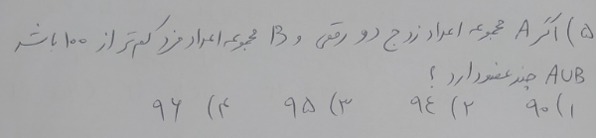 ۵) اگر A مجموعه اعداد زوج دو رقمی و B مجموعه اعداد فرد کمتر از ۱۰۰ باشد
AUB چند عضو دارد ؟
۱) ۹۰ ۲) ۹۴ ۳) ۹۵ ۴) ۹۶